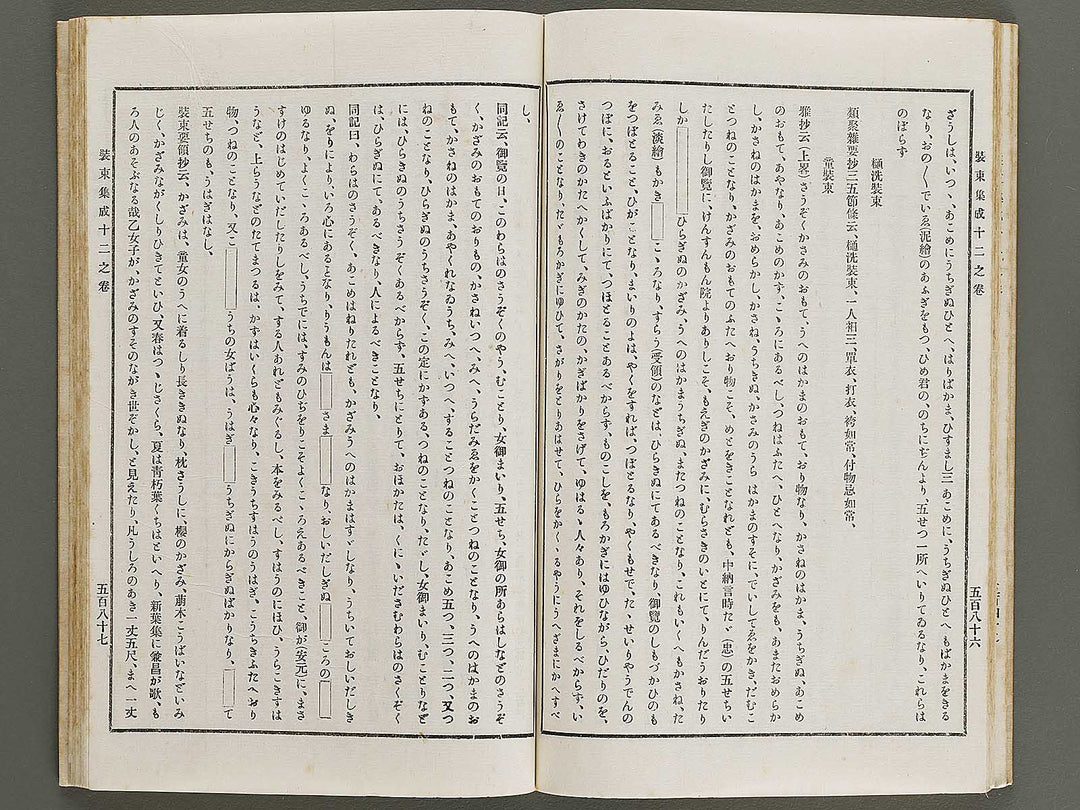 装束集成十二之卷
五百八十六
ざうしは、いつゝ、あこめにうちぎぬひとへ、はりばかま、ひすまし三 あこめに、うちぎぬひとへ もばかまをきる
なり、おの〱でいゑ(泥繪)のあふぎをもつ、ひめ君の、のちにぢんより、五せつ一所へいりてゐるなり、これらは
のぼらず
樋洗裝束
類聚雜要抄三五節條云、樋洗裝束、一人衵三、單衣、打衣、袴如常、付物忌如常、
童裝束
雅抄云(上畧)さうぞくかさみのおもて、うへのはかまのおもて、おり物なり、かさねのはかま、うちぎぬ、あこめ
のおもて、あやなり、あこめのかず、こゝろにあるべし、つねはふたへ、ひとへなり、かざみをも、あまたおめらか
し、かさねのはかまを、おめらかし、かさね、うちきぬ、かさみのうら はかまのすそに、でいしてゑをかき、だむこ
とつねのことなり、かざみのおもてのふたへおり物こそ、めとをきことなれども、中納言時たゞ(忠)の五せちい
たしたりし御覽に、けんすんもん院よりありしこそ、もえぎのかざみに、むらさきのいとにて、りんだうおりたり
しか
ひらぎぬのかざみ、うへのはかまうちぎぬ、またつねのことなり、これもいくへもかさね、た
みゑ(淡繪)もかき
こゝろなり、すらう(受領)のなどは、ひらきぬにてあるべきなり、御覽のしもづかひのも
をつぼとること、ひがごとなり、まいりのよは、やくをすれば、つぼとるなり、やくもせで、たゝせいりやうでんの
つぼに、おるといふばかりにて、つほとることあるべからす、ものこしを、もろかぎにはゆひながら、ひだりのを、
さけてわきのかたへかくして、みぎのかたのかぎばかりをさげて、ゆはるゝ人々あり、それをしるべからす、い
ゑ〱のことなり、たゞもろかぎにゆひて、さがりをとりあはせて、ひらをかくゝるやうにうへざまにかへすべ
し、
同記云、御覽の日、このわらはのさうぞくのやう、むことり、女御まいり、五せち、女御の所あらはしなどのさうぞ
く、かざみのおもてのおりもの、かさねいつへ、みへ、うらだみゑをかくことつねのことなり、うへのはかまのお
もて、かさねのはかま、あやくれなゐうち、みへ、いつへ、することつねのことなり、あこめ五つ、三つ、二つ、又つ
ねのことなり、ひらぎぬのうちさうぞく、この定にかずある、つねのことなり、たゞし、女御まいり、むことりなど
には、ひらきぬのうちさうぞくあるべからず、五せちにとりて、おほかたは、くにゝいださむわらはのさくぞく
は、ひらぎぬにて、あるべきなり、人によるべきことなり、
同記曰、わらはのさうぞく、あこめはねりたれども、かざみうへのはかまはすゞしなり、うちいておしいだしき
ぬ、をりにより、いろ心にあるとなり、りうもんは
さま
なり、おしいだしぎぬ
ころの
ゆるなり、よくこゝろあるべし、うちでには、すみのひぢをりこそよくこゝろえあるべきこと 御が(安元)に、まさ
すけのはじめていだしたりしをみて、する人あれどもみぐるし、本をみるべし、すはうのにほひ、うらこきすは
うなど、上らうなどのたてまつるは、かずはいくらも心々なり、こきうちすはうのうはぎ、こうちきふたへおり
物、つねのことなり、又こ
うちの女ばうは、うはぎ
うちぎぬにからぎぬばかりなり、
て
五せちのも、うはぎはなし、
裝束要領抄云、かざみは、童女のうへに着るしり長ききぬなり、枕さうしに、櫻のかざみ、萠木こうばいなどいみ
じく、かざみながくしりひきてといひ、又春はつゝじさくら、夏は靑朽葉くちはといへり、新葉集に兼昌が歌、も
ろ人のあそぶなる哉乙女子が、かざみのすそのながき世ぞかし、と見えたり、凡うしろのあき一丈五尺、まへ一丈
裝束集成十二之卷
五百八十七